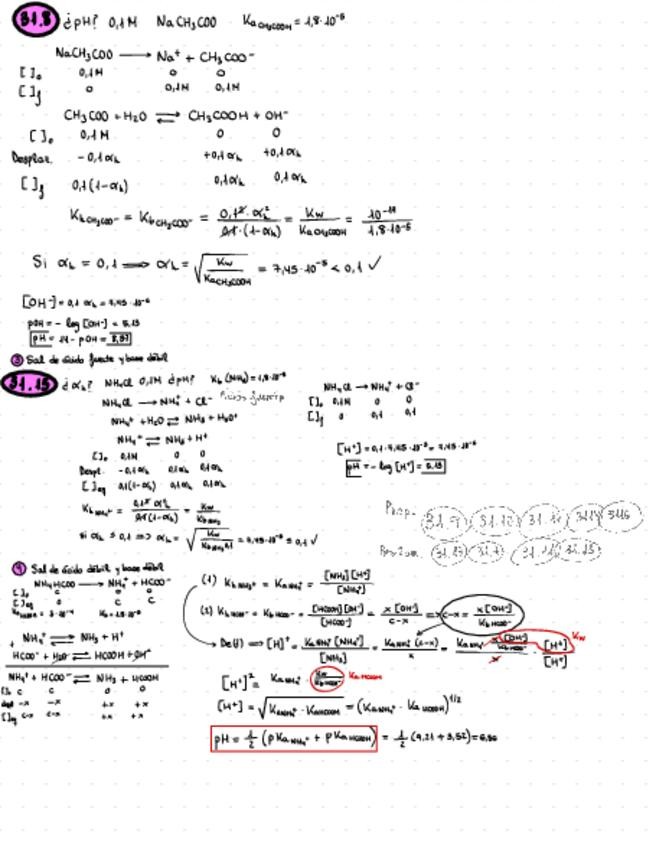 31.8 ¿pH? 0,1M NaCH₃COO Ka CH₃COOH = 1,8·10⁻⁵
NaCH₃COO ⟶ Na⁺ + CH₃COO⁻
[ ]₀ 0,1M 0 0
[ ]f 0 0,1M 0,1M
CH₃COO + H₂O ⇌ CH₃COOH + OH⁻
[ ]₀ 0,1M 0 0
Desplaz. -0,1αh +0,1αh +0,1αh
[ ]f 0,1(1-αh) 0,1αh 0,1αh
Kh CH₃COO⁻ = Kb CH₃COO⁻ = 0,1²·αh² / 0,1·(1-αh) = Kw / Ka CH₃COOH = 10⁻¹⁴ / 1,8·10⁻⁵
Si αh = 0,1 ⟹ αh = √(Kw / Ka CH₃COOH) = 7,45·10⁻⁵ < 0,1 ✓
[OH⁻] = 0,1 αh = 7,45·10⁻⁶
pOH = - log [OH⁻] = 5,13
pH = 14 - pOH = 8,87
③ Sal de ácido fuerte y base débil
31.15 ¿αh? NH₄Cl 0,1M ¿pH? Kb (NH₃) = 1,8·10⁻⁵
NH₄Cl ⟶ NH₄⁺ + Cl⁻
NH₄⁺ + H₂O ⇌ NH₃ + H₃O⁺
NH₄⁺ ⇌ NH₃ + H⁺
[ ]₀ 0,1M 0 0
Despl. -0,1αh 0,1αh 0,1αh
[ ]eq 0,1(1-αh) 0,1αh 0,1αh
Kh NH₄⁺ = 0,1² αh² / 0,1(1-αh) = Kw / Kb NH₃
si αh ≤ 0,1 ⟹ αh = √(Kw / Kb NH₃·0,1) = 7,45·10⁻⁵ ≤ 0,1 ✓
NH₄Cl ⟶ NH₄⁺ + Cl⁻
[ ]₀ 0,1M 0 0
[ ]f 0 0,1 0,1
[H⁺] = 0,1·7,45·10⁻⁵ = 7,45·10⁻⁶
pH = - log [H⁺] = 5,13
Prop.
31.9 31.10
④ Sal de ácido débil y base débil
NH₄HCOO ⟶ NH₄⁺ + HCOO⁻
[ ]₀ C 0 0
[ ]eq 0 C C
NH₄⁺ ⇌ NH₃ + H⁺
+ HCOO⁻ + H₂O ⇌ HCOOH + OH⁻
NH₄⁺ + HCOO⁻ ⇌ NH₃ + HCOOH
[ ]₀ C C 0 0
despl -x -x +x +x
[ ]eq c-x c-x +x +x
(1) Kh NH₄⁺ = Ka NH₄⁺ = [NH₃][H⁺] / [NH₄⁺]
(2) Kh HCOO⁻ = Kb HCOO⁻ = [HCOOH][OH⁻] / [HCOO⁻] = x[OH⁻] / c-x ⇒ c-x = x[OH⁻] / Kb HCOO⁻
De(1) ⟹ [H]⁺ = Ka NH₄⁺ [NH₄⁺] / [NH₃] = Ka NH₄⁺ (c-x) / x = Ka NH₄⁺ x[OH⁻] / Kb HCOO⁻ / x · [H⁺] / [H⁺] Kw
[H⁺]² = Ka NH₄⁺ · Kw / Kb HCOO⁻ Ka HCOOH
[H⁺] = √(Ka NH₄⁺ · Ka HCOOH) = (Ka NH₄⁺ · Ka HCOOH)^1/2
pH = 1/2 (pKa NH₄⁺ + pKa HCOOH) = 1/2 (9,21 + 3,52) = 6,36